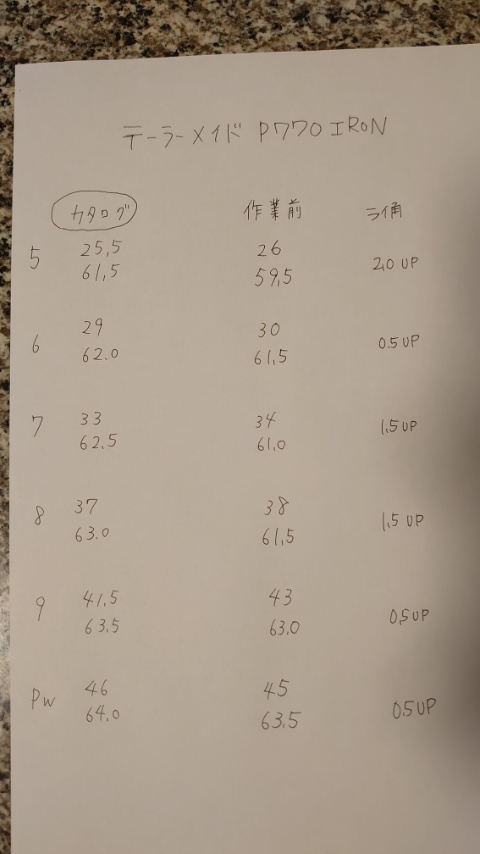 テーラーメイド P770 IRON
カタログ 作業前 ライ角
5 25,5 26
61,5 59,5 2,0 UP
6 29 30
62.0 61,5 0.5 UP
7 33 34
62.5 61,0 1,5 UP
8 37 38
63.0 61,5 1,5 UP
9 41,5 43
63,5 63.0 0,5 UP
PW 46 45
64,0 63.5 0.5 UP